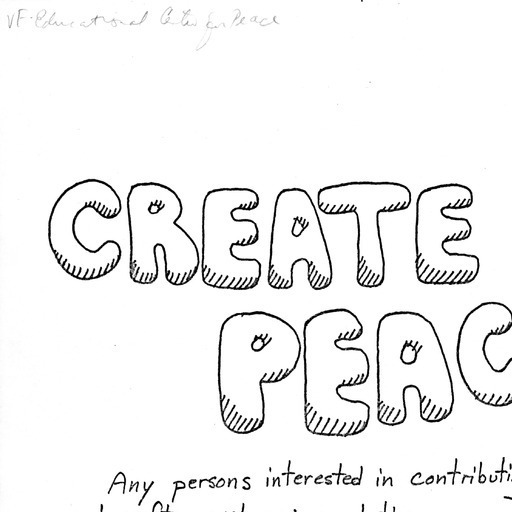 VF-Educational Center for Peace
CREATE
PEAC
Any persons interested in contributi